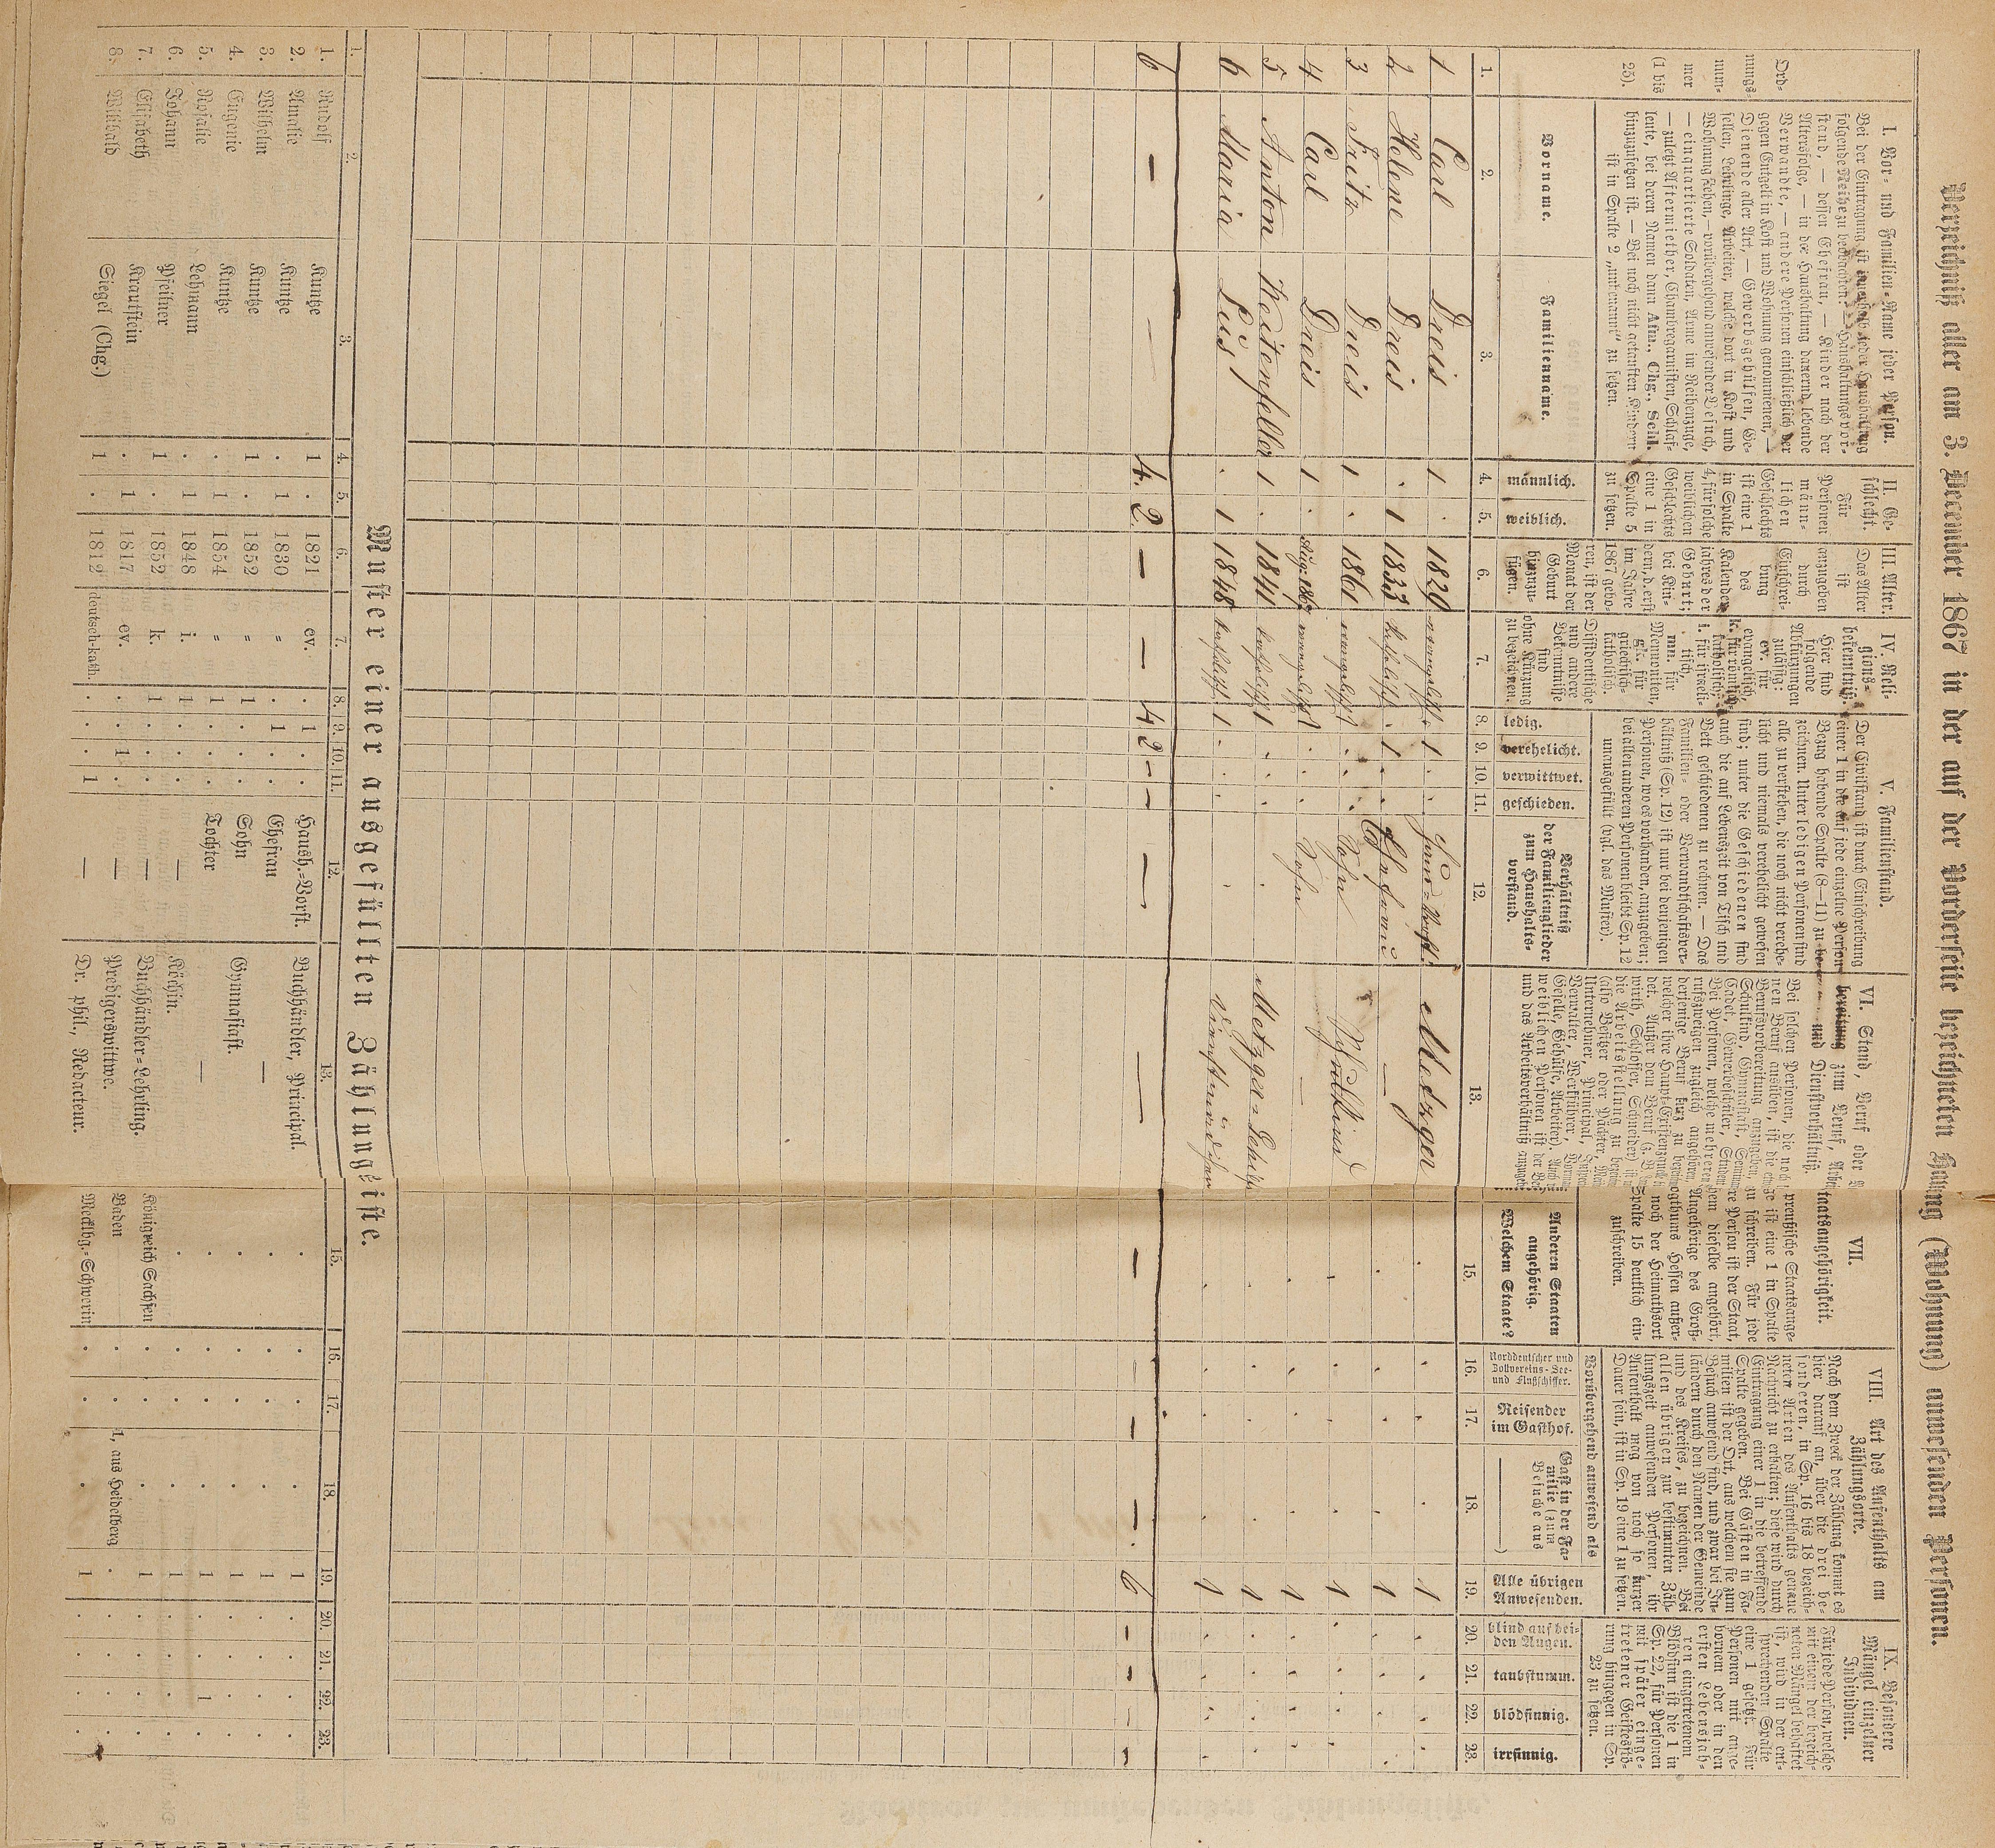 Verzeichniß aller am 3. December 1867 in der auf der Vorderseite bezeichneten Haushaltung (Wohnung) anwesenden Personen.
Ord-
nungs-
num-
mer
(1 bis
25).
I. Vor- und Familien-Name jeder Person.
Bei der Eintragung ist innerhalb jeder Haushaltung
folgende Reihe zu beobachten: Haushaltungsvor-
stand, — dessen Ehefrau, — Kinder nach der
Altersfolge, — in der Haushaltung dauernd lebende
Verwandte, — andere Personen einschließlich der
gegen Entgelt in Kost und Wohnung genommenen, —
Dienende aller Art, — Gewerbsgehülfen, Ge-
sellen, Lehrlinge, Arbeiter, welche dort in Kost und
Wohnung stehen, — vorübergehend anwesender Besuch,
— einquartierte Soldaten, Arme im Reihenzuge,
— zuletzt Aftermiether, Chambregarnisten, Schlaf-
leute, bei deren Namen dann Afm., Chg., Schl.
hinzuzusetzen ist. — Bei noch nicht getauften Kindern
ist in Spalte 2 „unbenannt" zu setzen.
II. Ge-
schlecht.
Für
Personen
männ-
lichen
Geschlechts
ist eine 1
in Spalte
4, für solche
weiblichen
Geschlechts
eine 1 in
Spalte 5
zu setzen.
III. Alter.
Das Alter
ist
anzugeben
durch
Einschrei-
bung
des
Kalender-
jahres der
Geburt;
bei Kin-
dern, d. erst
im Jahre
1867 gebo-
ren, ist der
Monat der
Geburt
hinzuzu-
fügen.
IV. Reli-
gions-
bekenntniß.
Hier sind
folgende
Abkürzungen
zulässig:
ev. für
evangelisch,
k. für römisch-
katholisch,
i. für israeli-
tisch,
mn. für
Mennoniten,
gk. für
griechisch-
katholisch.
Dissidentische
und andere
Bekenntnisse
sind
ohne Kürzung
zu bezeichnen.
V. Familienstand.
Der Civilstand ist durch Einschreibung
einer 1 in die auf jede einzelne Person
Bezug habende Spalte (8—11) zu be-
zeichnen. Unter ledigen Personen sind
alle zu verstehen, die noch nicht verehe-
licht und niemals verehelicht gewesen
sind; unter die Geschiedenen sind
auch die auf Lebenszeit von Tisch und
Bett geschiedenen zu rechnen. — Das
Familien- oder Verwandtschaftsver-
hältniß (Sp. 12) ist nur bei denjenigen
Personen, wo es vorhanden, anzugeben;
bei allen anderen Personen bleibt Sp. 12
unausgefüllt (vgl. das Muster).
VI. Stand, Beruf oder
bereitung zum Beruf,
und Dienstverhältniß.
Bei solchen Personen, die
nen Beruf ausüben, ist die
Berufsvorbereitung anzugeben,
Schulkind, Gymnasiast,
Cadet, Gewerbeschüler,
Bei Personen, welche mehreren
rufszweigen zugleich angehören,
derjenige Beruf
welcher ihre Haupt-Existenzquelle
net. Außer dem Beruf
wirth, Schlosser, Schneider)
die Arbeitsstellung zu
(also Besitzer oder Pächter,
Unternehmer, Principal,
Verwalter, Werkführer,
Geselle, Gehülfe, Arbeiter).
weiblichen Personen ist
und das Arbeitsverhältniß
VII.
taatsangehörigkeit.
preußische Staatsange-
ist eine 1 in Spalte
zu schreiben. Für jede
re Person ist der Staat,
hem dieselbe angehört,
Angehörige des Groß-
ogthums Hessen außer-
noch der Heimathsort
Spalte 15 deutlich ein-
zuschreiben.
VIII. Art des Aufenthalts am
Zählungsorte.
Nach dem Zweck der Zählung kommt es
hier darauf an, über die drei be-
sonderen, in Sp. 16 bis 18 bezeich-
neten Arten des Aufenthalts genaue
Nachricht zu erhalten; diese wird durch
Eintragung einer 1 in die betreffende
Spalte gegeben. Bei Gästen in Fa-
milien ist der Ort, aus welchem sie zum
Besuch anwesend sind, und zwar bei In-
ländern durch den Namen der Gemeinde
und des Kreises, zu bezeichnen. Bei
allen übrigen zur bestimmten Zäh-
lungszeit anwesenden Personen, ihr
Aufenthalt mag von noch so kurzer
Dauer sein, ist in Sp. 19 eine 1 zu setzen.
IX. Besondere
Mängel einzelner
Individuen.
Für jede Person, welche
mit einem der bezeich-
neten Mängel behaftet
ist, wird in der ent-
sprechenden Spalte
eine 1 gesetzt. Für
Personen mit ange-
bornem oder in den
ersten Lebensjah-
ren eingetretenem
Blödsinn ist die 1 in
Sp. 22, für Personen
mit später einge-
tretener Geistesstö-
rung hingegen in Sp.
23 zu setzen.
Vorname. Familienname. männlich. weiblich. ledig. verehelicht. verwittwet. geschieden.
Verhältniß
der Familienglieder
zum Haushalts-
vorstand.
Anderen Staaten
angehörig.
Welchem Staate?
Vorübergehend anwesend als
Norddeutscher und
Zollvereins-See-
und Flußschiffer.
Reisender
im Gasthof.
Gast in der Fa-
milie (zum
Besuche aus
)
Alle übrigen
Anwesenden.
blind auf bei-
den Augen.
taubstumm.
blödsinnig.
irrsinnig.
1. 2. 3. 4. 5. 6. 7. 8. 9. 10. 11. 12. 13. 15. 16. 17. 18. 19. 20. 21. 22. 23.
1 Carl Dreis 1 . 1829 evangelisch . 1 . . Haus-Vorst. Metzger . . . . 1 . . . .
2 Helene Dreis . 1 1833 katholisch . 1 . . Ehefrau — . . . . 1 . . . .
3 Fritz Dreis 1 . 1861 evangelisch 1 . . . Sohn Schulkind . . . . 1 . . . .
4 Carl Dreis 1 . Aug. 1867 evangelisch 1 . . . Sohn — . . . . 1 . . . .
5 Anton Weitenfeller 1 . 1841 katholisch 1 . . . . Metzger-Gehülfe . . . . 1 . . . .
6 Maria . 1 1848 katholisch 1 . . . . Dienstmädchen . . . . 1 . . . .
6 — — 4. 2. — — 4 2 — — — — — — — — 6 — — — —
Muster einer ausgefüllten Zählungsliste.
1. 2. 3. 4. 5. 6. 7. 8. 9. 10. 11. 12. 13. 15. 16. 17. 18. 19. 20. 21. 22. 23.
1. Rudolf Kuntze 1 . 1821 ev. . 1 . . Haush.-Vorst. Buchhändler, Principal. . . . . 1 . . . .
2. Amalie Kuntze . 1 1830 " . 1 . . Ehefrau — . . . . 1 . . . .
3. Wilhelm Kuntze 1 . 1852 " 1 . . . Sohn Gymnasiast. . . . . 1 . . . .
4. Eugenie Kuntze . 1 1854 " 1 . . . Tochter — . . . . 1 . . 1 .
5. Rosalie Lehmann . 1 1848 i. 1 . . . — Köchin. . . . . 1 . . . .
6. Johann Pfeilner 1 . 1852 k. 1 . . . — Buchhändler-Lehrling. Königreich Sachsen . . . 1 . . . .
7. Elisabeth Krautstein . 1 1817 ev. . . 1 . — Predigerswittwe. Baden . . 1, aus Heidelberg . . . . .
8. Willibald Siegel (Chg.) 1 . 1812 deutsch-kath. . . . 1 — Dr. phil., Redacteur. Mecklbg.-Schwerin . . . 1 . . . .